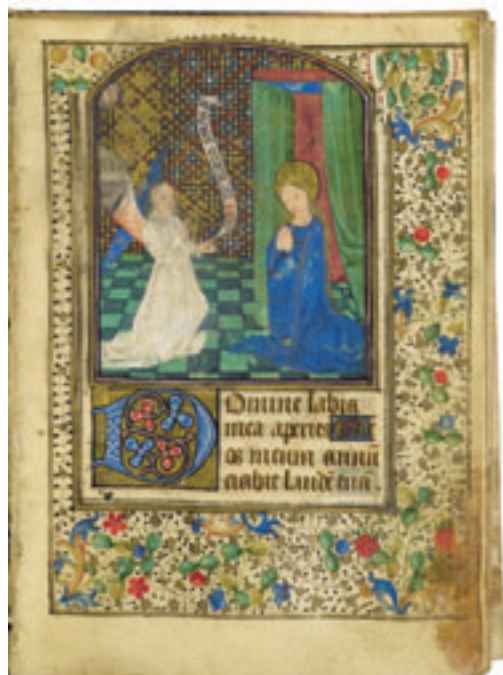 Domine labia
mea aperies et
os meum annũ
ciabit laudẽ tuã.